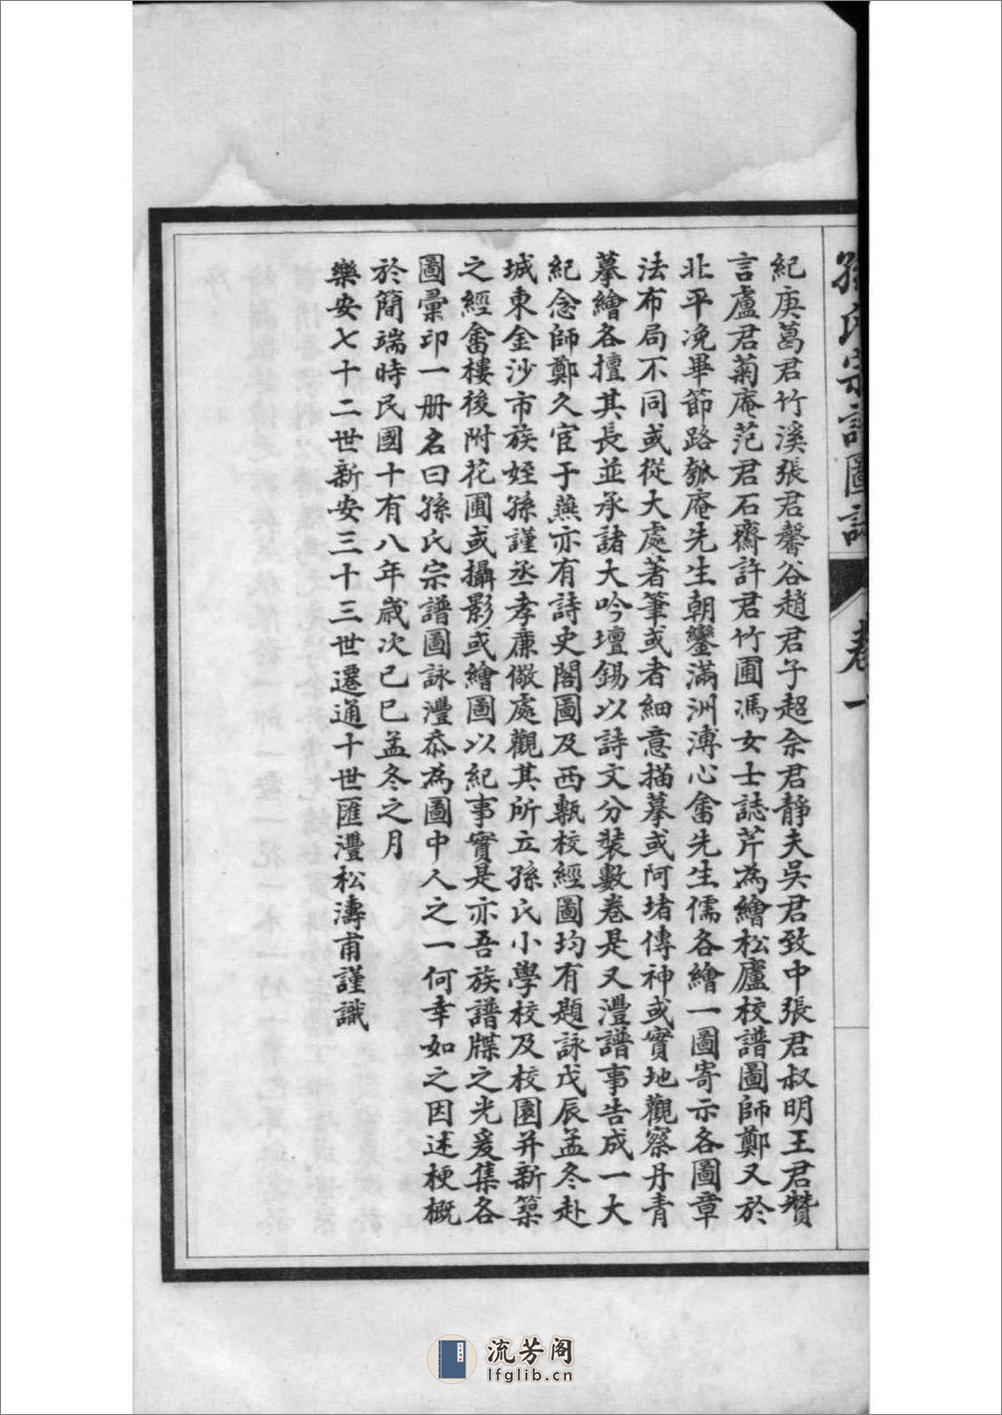 孫氏宗譜圖詠 卷一
紀庚葛君竹溪張君馨谷趙君子超余君靜夫吳君致中張君叔明王君贊
言盧君菊庵范君石齋許君竹圃馮女士誌芹為繪松廬校譜圖師鄭又於
北平浼畢節路瓠庵先生朝鑾滿洲溥心畬先生儒各繪一圖寄示各圖章
法布局不同或從大處著筆或者細意描摹或阿堵傳神或實地觀察丹青
摹繪各擅其長並承諸大吟壇錫以詩文分裝數卷是又灃譜事告成一大
紀念師鄭久宦于燕亦有詩史閣圖及西甎校經圖均有題詠戊辰孟冬赴
城東金沙市族姪孫謹丞孝廉儆處觀其所立孫氏小學校及校園并新築
之經畬樓後附花圃或攝影或繪圖以紀事實是亦吾族譜牒之光爰集各
圖彙印一册名曰孫氏宗譜圖詠灃忝為圖中人之一何幸如之因述梗概
於簡端時民國十有八年歲次己巳孟冬之月
樂安七十二世新安三十三世遷通十世匯灃松濤甫謹識
流芳阁
lfglib.cn